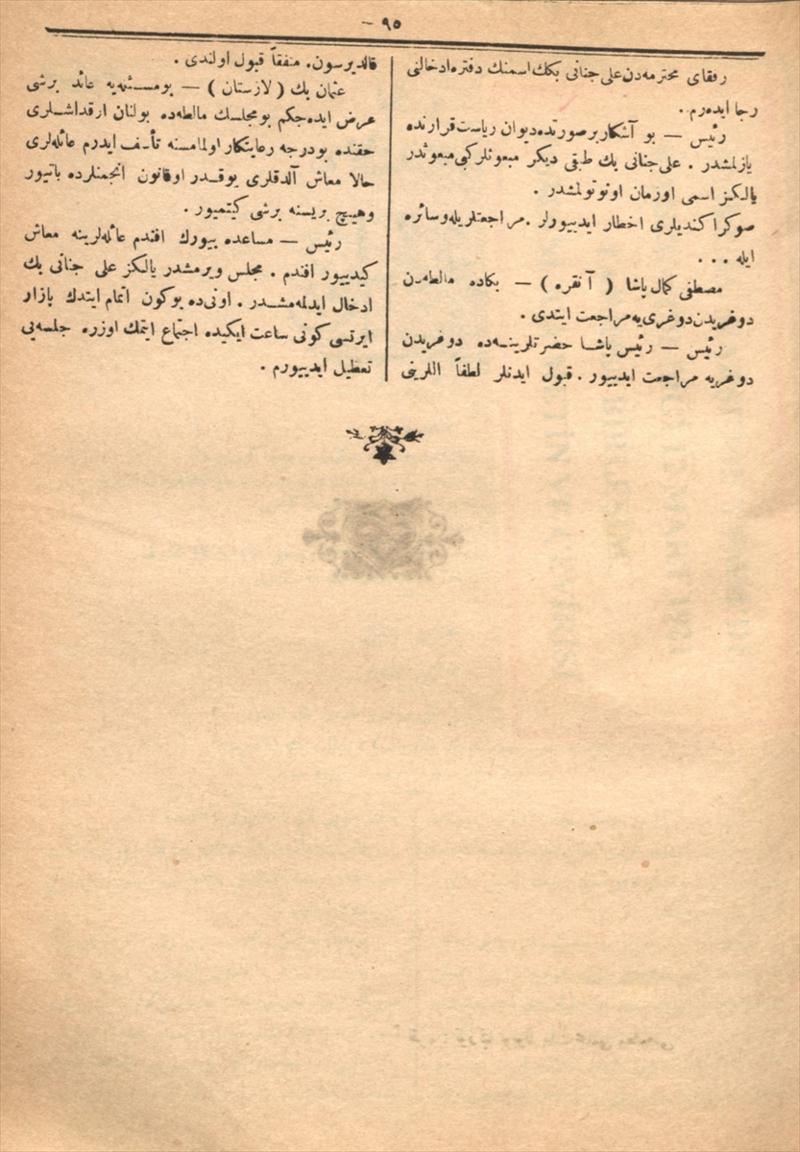 — ٩٥
رفقای محترمه‌دن علی جنانی بكك اسمنك دفتره ادخالنی
رجا ایده‌رم.
رئیس — بو آشكار بر صورتده دیوان ریاست قرارنده
یازلمشدر . علی جنانی بك طبقی دیگر مبعوثلر كبی مبعوثدر
یالكز اسمی اوزمان اونوتولمشدر .
صوكرا كندیلری اخطار ایدییورلر . مراجعتلریله وسائره
ایله ...
مصطفی كمال پاشا ( آنقره ) — بكاده مالطه‌دن
دوغریدن دوغری‌یه مراجعت ایتدی .
رئیس — رئیس پاشا حضرتلرینه‌ده دوغریدن
دوغری‌یه مراجعت ایدییور . قبول ایدنلر لطفاً اللرینی
قالدیرسون. متفقاً قبول اولندی .
عثمان بك ( لازستان ) — بومسئله‌یه عائد برشی
عرض ایده‌جكم بومجلسك مالطه‌ده بولنان ارقداشلری
حقنده بودرجه رعایتكار اولمامسنه تأسف ایدرم عائله‌لری
حالا معاش آلدقلری یوقدر اوقانون انجمنلرده یاتیور
وهیچ بریسنه برشی كیتمیور .
رئیس — مساعده بیورك افندم عائله‌لرینه معاش
كیدییور افندم . مجلس ویرمشدر یالكز علی جنانی بك
ادخال ایدلمه‌مشدر . اونی‌ده بوكون اتمام ایتدك بازار
ایرتسی كونی ساعت ایكیده اجتماع ایتمك اوزره جلسه‌یی
تعطیل ایدییورم .